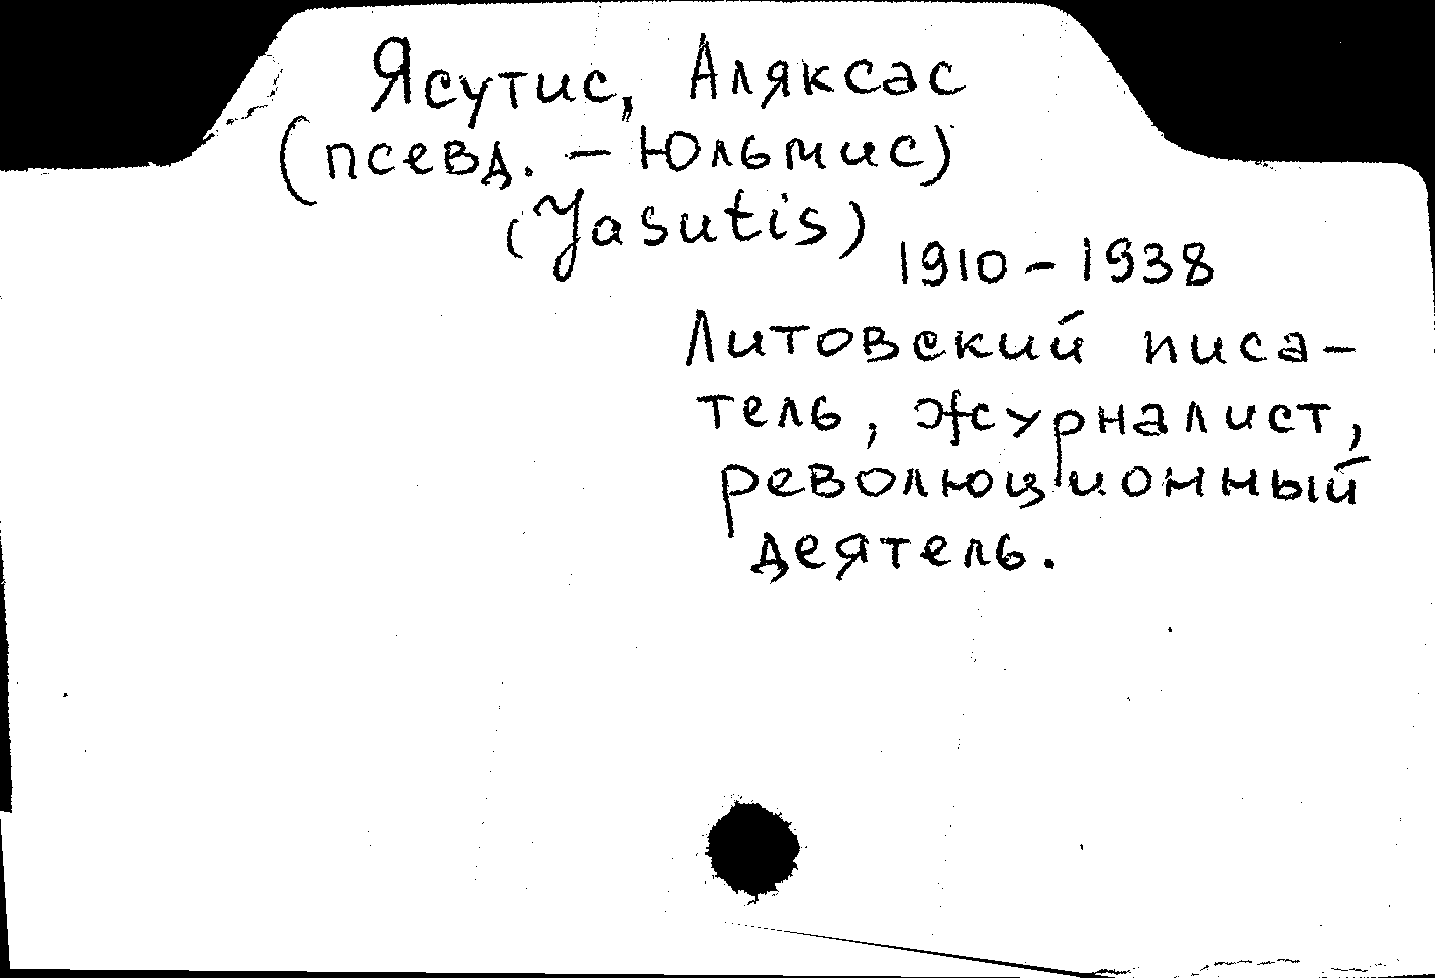 Ясутис, Аляксас
(псевд. – Юльмис)
(Yasutis)
1910 – 1938
Литовский писа-
тель, журналист,
революционный
деятель.